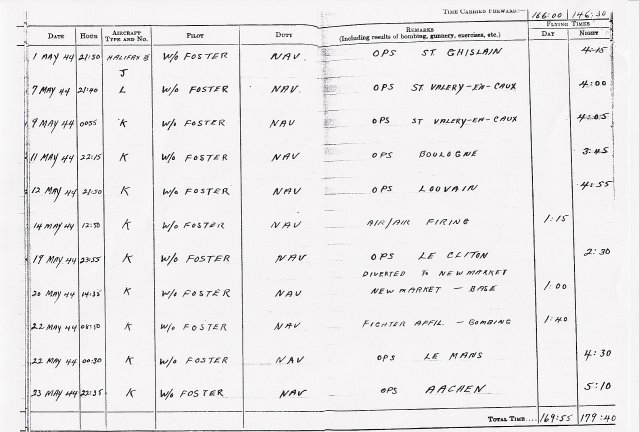 TIME CARRIED FORWARD:— 166:00 146:30
DATE HOUR AIRCRAFT TYPE AND NO. PILOT DUTY REMARKS (Including results of bombing, gunnery, exercises, etc.) FLYING TIMES DAY NIGHT
1 MAY 44 21:50 HALIFAX J W/O FOSTER NAV. OPS ST GHISLAIN 4:15
7 MAY 44 21:40 L W/O FOSTER NAV. OPS ST. VALERY-EN-CAUX 4:00
9 MAY 44 0055 K W/O FOSTER NAV OPS ST VALERY-EN-CAUX 4:05
11 MAY 44 22:15 K W/O FOSTER NAV OPS BOULOGNE 3:45
12 MAY 44 21:50 K W/O FOSTER NAV OPS LOUVAIN 4:55
14 MAY 44 12:50 K W/O FOSTER NAV AIR/AIR FIRING 1:15
19 MAY 44 23:55 K W/O FOSTER NAV OPS LE CLITON 2:30
DIVERTED TO NEWMARKET
20 MAY 44 14:35 K W/O FOSTER NAV NEWMARKET - BASE 1:00
22 MAY 44 K W/O FOSTER NAV FIGHTER AFFIL - BOMBING 1:40
22 MAY 44 00:30 K W/O FOSTER NAV OPS LE MANS 4:30
23 MAY 44 22:35 K W/O FOSTER NAV OPS AACHEN 5:10
TOTAL TIME.... 169:55 179:40